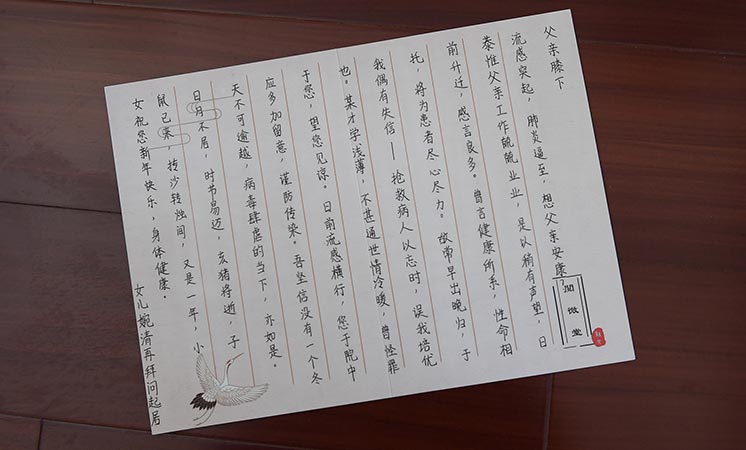 父亲膝下
流感突起，肺炎逼至，想父亲安康。
恭惟父亲工作兢兢业业，是以稍有声望，日
前升迁，感言良多。曾言健康所系，性命相
托，将为患者尽心尽力。故常早出晚归，于
我偶有失信——抢救病人以忘时，误我培优
也。某才学浅薄，不甚通世情冷暖，曾怪罪
于您，望您见谅。日前流感横行，您于院中
应多加留意，谨防传染。吾坚信没有一个冬
天不可逾越，病毒肆虐的当下，亦如是。
日月不居，时节易迈，亥猪将逝，子
鼠已来，抟沙转烛间，又是一年，小
女祝您新年快乐，身体健康。
女儿婉清再拜问起居
閒微堂